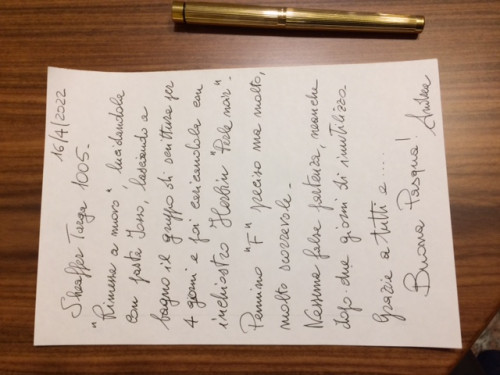 16/4/2022
Sheaffer Targa 1005.
"Rimessa a nuovo" lucidandola
con pasta Iosso, lasciando a
bagno il gruppo di scrittura per
4 giorni e poi caricandola con
inchiostro Herbin "Perle noir".
Pennino "F" preciso ma molto,
molto scorrevole.
Nessuna falsa partenza, neanche
dopo due giorni di inutilizzo
Grazie a tutti e.....
Buona Pasqua!
Andrea